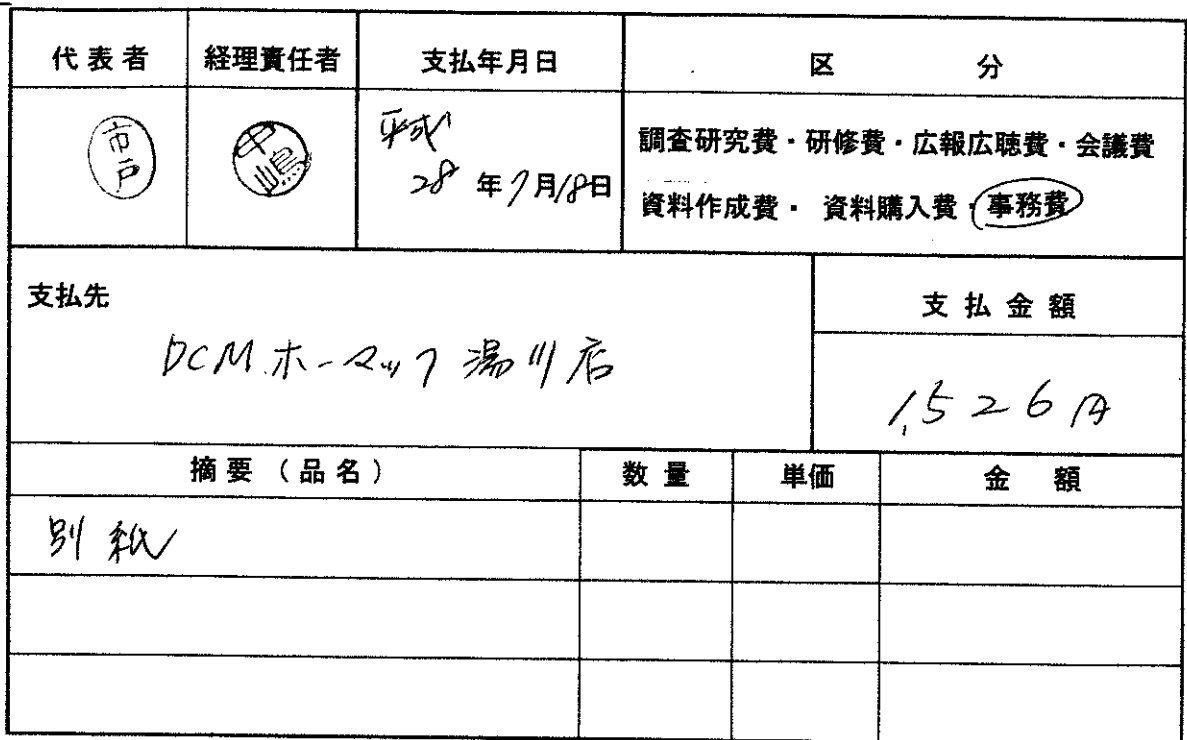 代表者 経理責任者 支払年月日 区 分
市戸 中嶋 平成
28年7月18日
調査研究費・研修費・広報広聴費・会議費
資料作成費・ 資料購入費・事務費
支払先 支払金額
DCMホーマック湯川店
1,526円
摘要（品名） 数量 単価 金 額
別紙